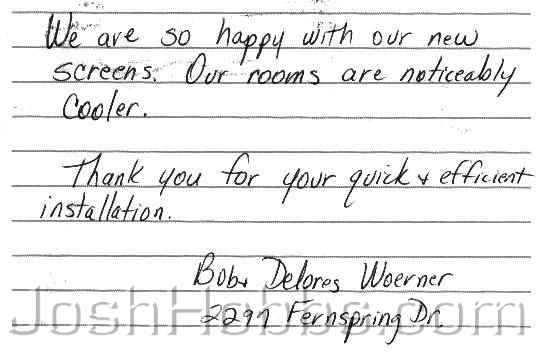 We are so happy with our new
screens. Our rooms are noticeably
cooler.
Thank you for your quick & efficient
installation.
Bob & Delores Woerner
2297 Fernspring Dr.
JoshHobbs.com